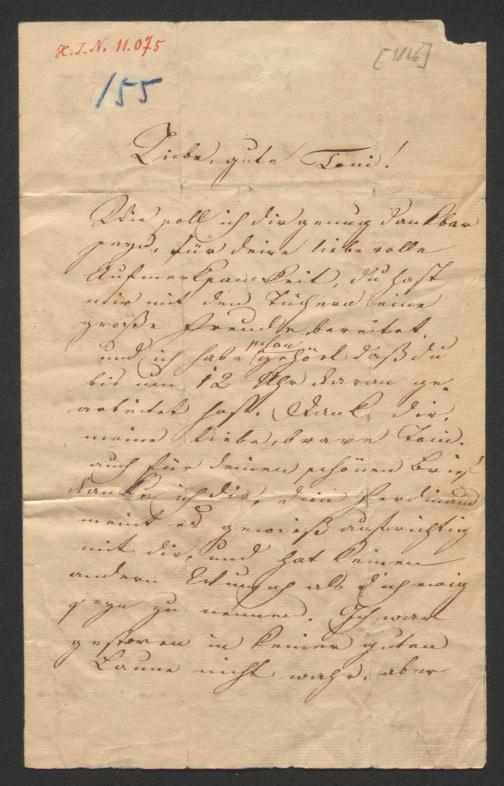 H.I.N. 11.075
[1826]
155
Liebe, gute Toni!
Wie soll ich dir genug dankbar
seyn, für deine liebevolle
Aufmerksamkeit, du hast
mir mit den Tüchern eine
große Freude bereitet,
schon
und ich habe gehört daß du
bis um 12 Uhr daran ge
arbeitet hast. Dank dir,
meine liebe, brave Toni.
auch für deinen schönen Brief
danke ich dir, dein Ferdinand
meint es gewieß aufrichtig
mit dir, und hat keinen
andern Wunsch als dich ewig
seyn zu nennen. Ich war
gestern in keiner guten
Laune nicht wahr, aber